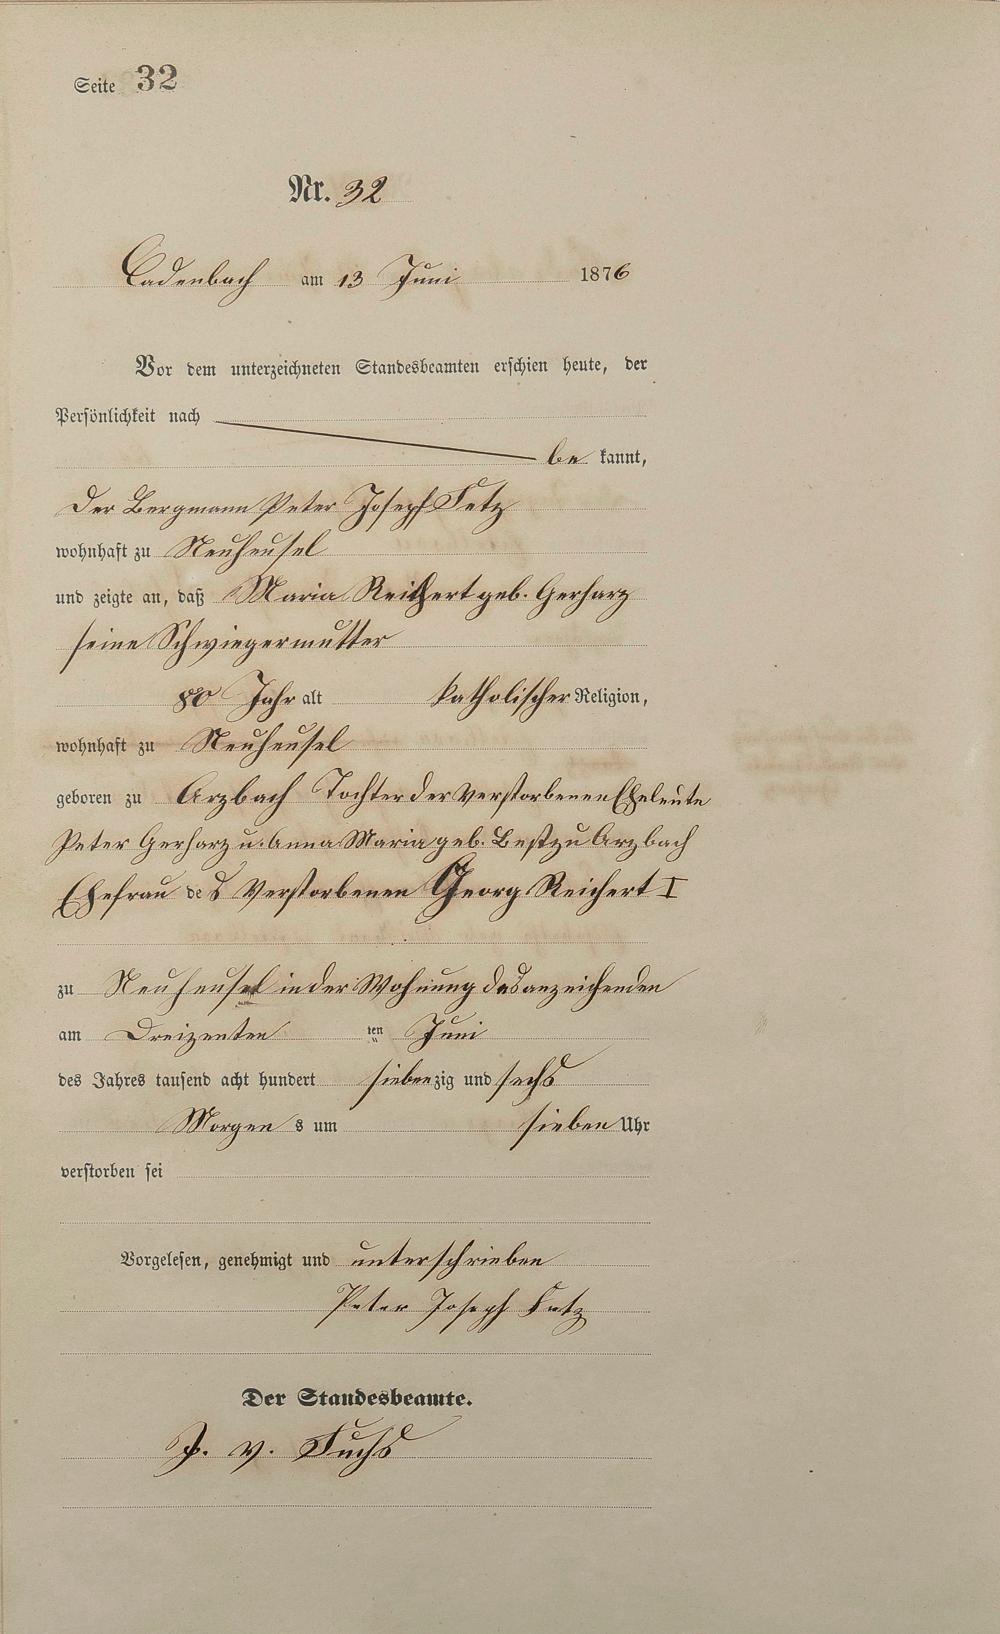 Seite 32
Nr. 32
Cadenbach am 13 Juni 1876
Vor dem unterzeichneten Standesbeamten erschien heute, der
Persönlichkeit nach
be kannt,
Der Bergmann Peter Joseph Fetz
wohnhaft zu Neuheusel
und zeigte an, daß Maria Reichert geb. Gerharz
seine Schwiegermutter
80 Jahr alt katholischer Religion,
wohnhaft zu Neuheusel
geboren zu Arzbach Tochter der verstorbenen Eheleute
Peter Gerharz u. Anna Maria geb. Best zu Arzbach
Ehefrau des verstorbenen Georg Reichert I
zu Neuheusel in der Wohnung des anzeichenden
am Dreizenten ten Juni
des Jahres tausend acht hundert siebenzig und sechs
Morgens um sieben Uhr
verstorben sei
Vorgelesen, genehmigt und unterschrieben
Peter Joseph Fetz
Der Standesbeamte.
v. Fuchs